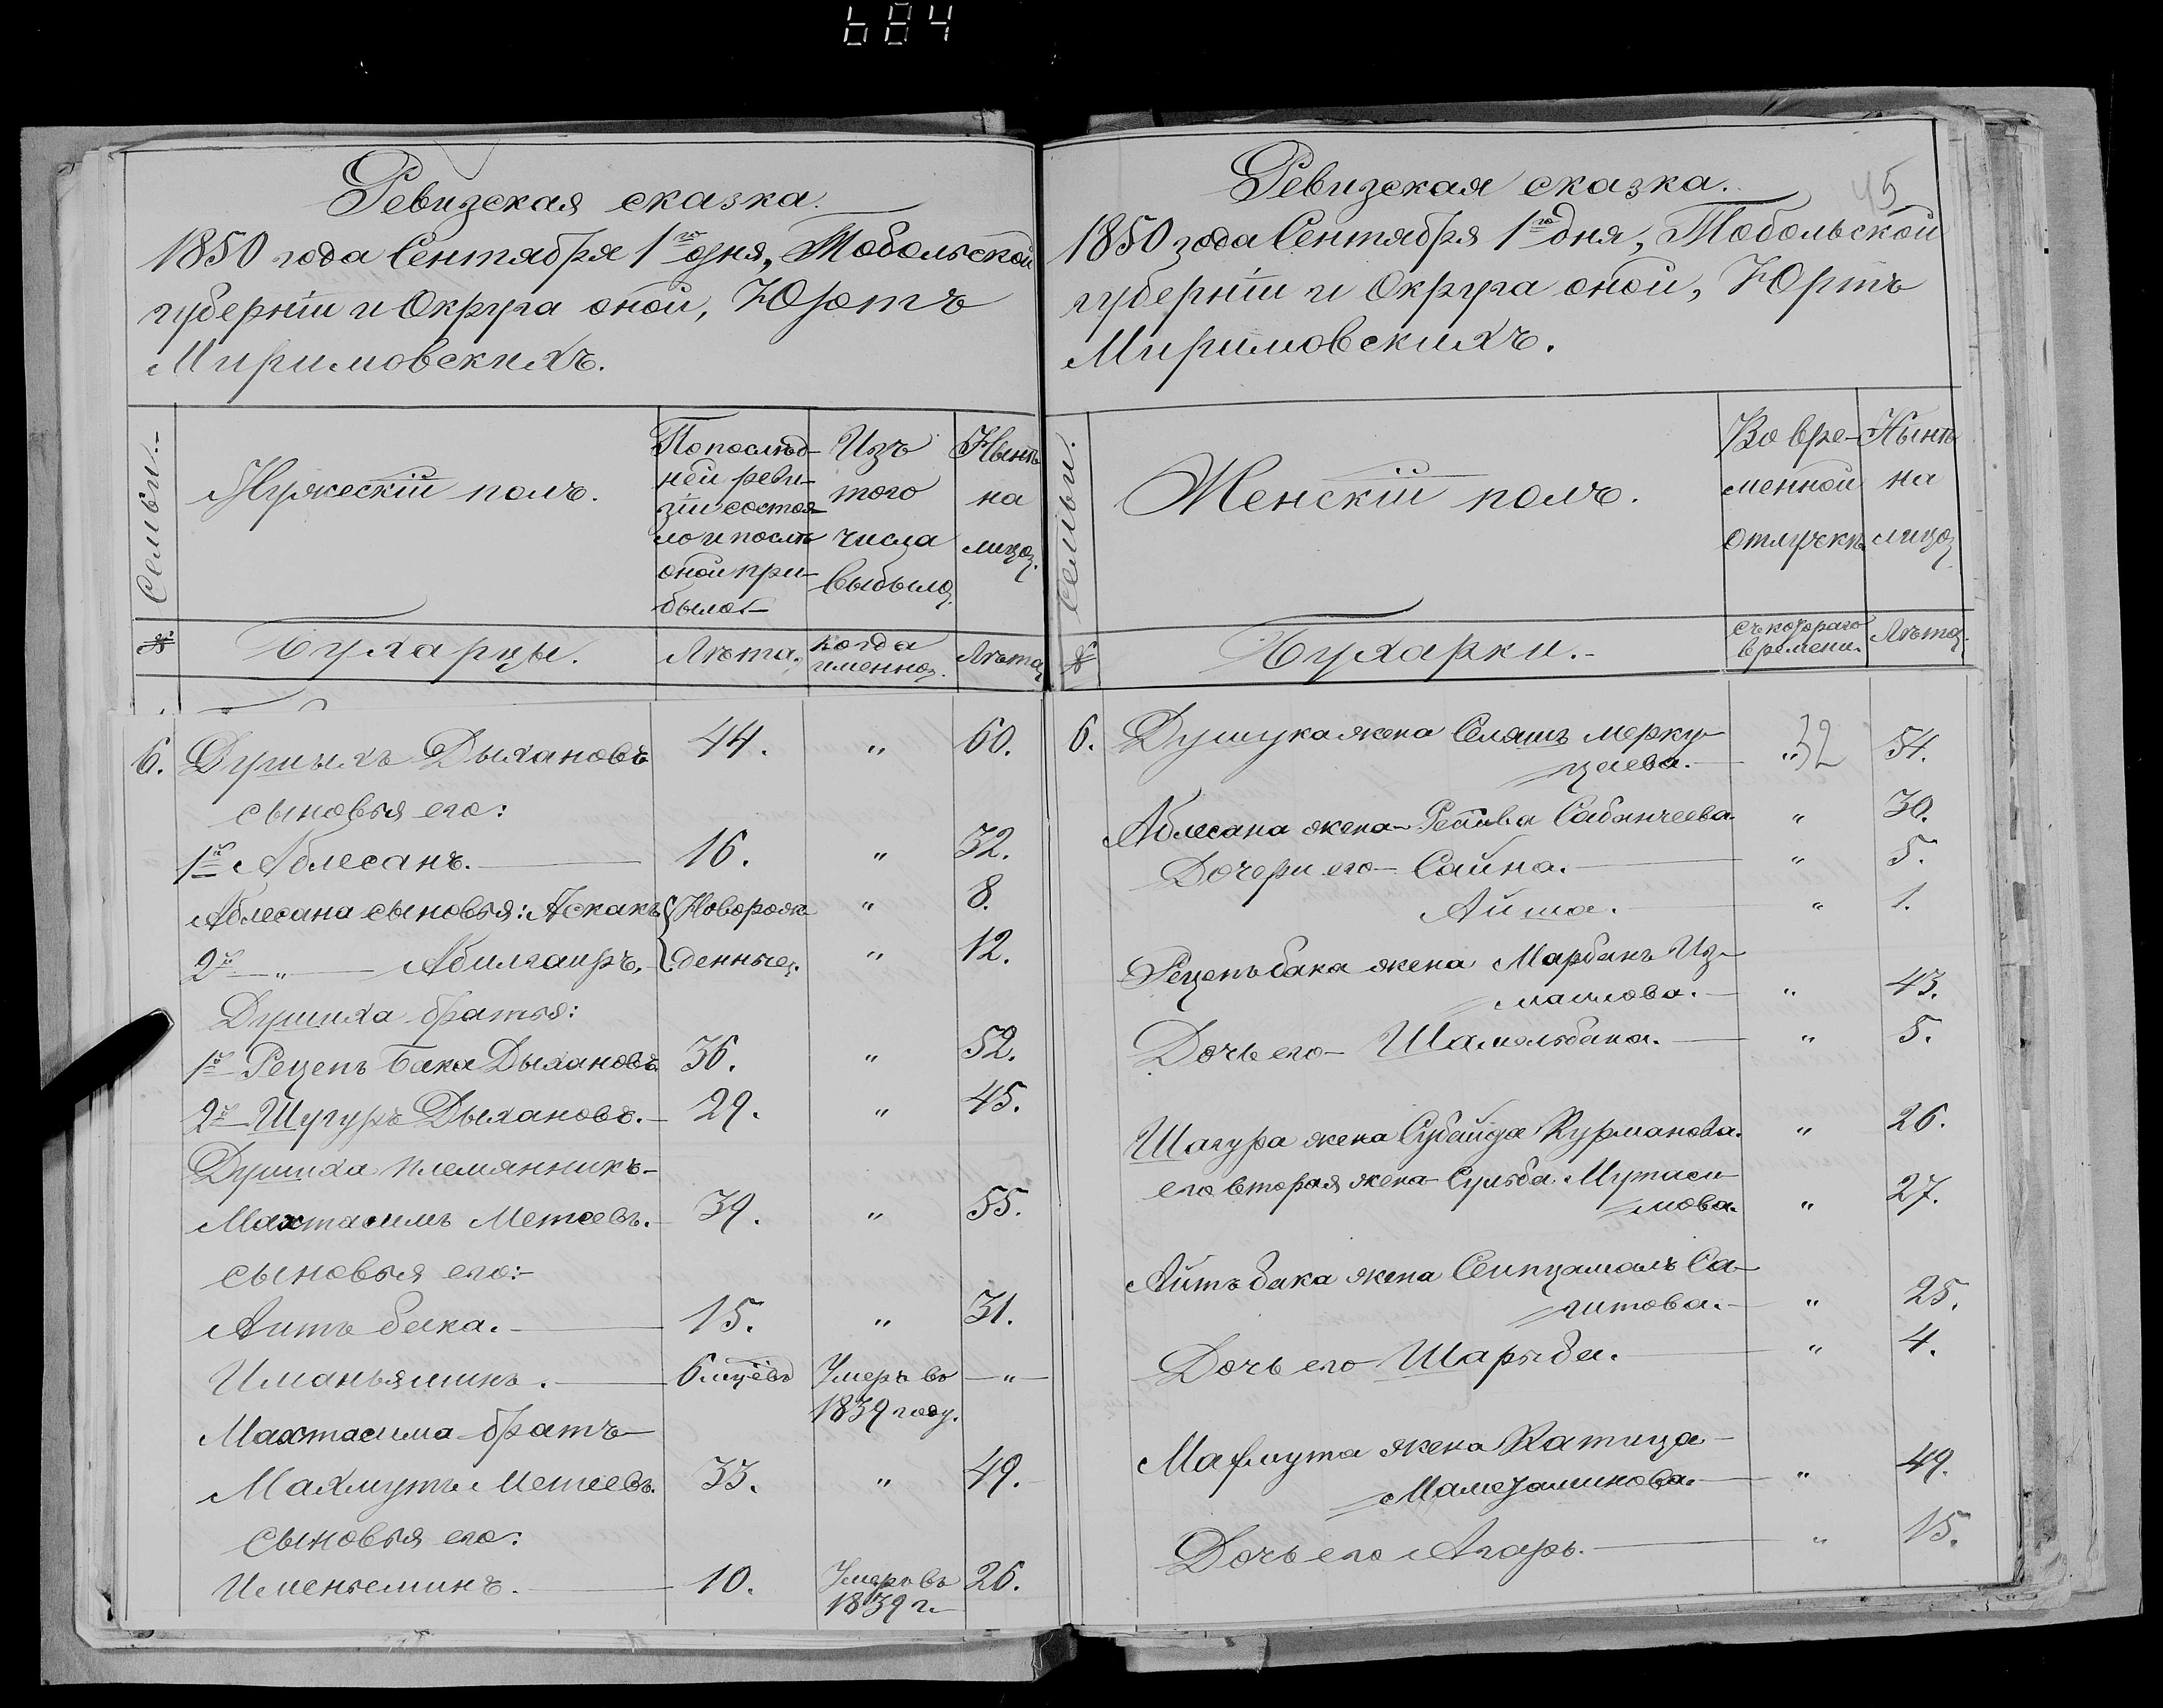 684
Ревизская сказка.
1850 года Сентября 1го дня, Тобольской
губерніи и Округа оной, Юртъ
Миримовскихъ.
№ Семьи.
Мужескій полъ.
По послѣд-
ней реви-
зіи состоя-
ло и послѣ
оной при-
было
Изъ
того
числа
выбыло.
Нынѣ
на
лицо.
Бухарцы.
Лѣта.
когда
именно.
Лѣта
6. Душыхъ Дыхановъ 44. " 60.
сыновья его:
1й Аблесанъ. 16. " 32.
Аблесана сыновья: Аскакъ Новорож- " 8.
2й " Абилгаиръ. денные. " 12.
Душиха братья:
1й Рецепъ Бака Дыхановъ 36. " 52.
2й Шугуръ Дыхановъ. 29. " 45.
Душиха племянникъ-
Махтасимъ Метеевъ. 39. " 55.
сыновья его:
Аитъ бака. 15. " 31.
Иманьяминъ. 6 мцевъ Умеръ въ "
1839 году.
Махтасима братъ
Махмутъ Метеевъ. 33. " 49.
сыновья его:
Именьеминъ. 10. Умеръ въ 26.
1839 г.
45
Ревизская сказка.
1850 года Сентября 1го дня, Тобольской
губерніи и Округа оной, Юртъ
Миримовскихъ.
№ Семьи.
Женскій полъ.
Во вре-
менной
отлучкѣ
Нынѣ
на
лицо.
Бухарки.
съ котораго
времени.
Лѣта.
6. Душука жена Селяшъ Мерку-
цаева. " 32 54.
Аблесана жена Сабанчеева " 30.
Дочери его Сайна. " 5.
Айша. " 1.
Рецепъ бака жена Марбанъ Из-
маилова. " 43.
Дочь его Шамальбана. " 5.
Шагура жена Субайда Курманова. " 26.
его вторая жена Сульба Мутаси-
мова. " 27.
Айтъ бака жена Сеипцамалъ Са-
гитова. " 25.
Дочь его Шарыба. " 4.
Махмута жена Катица
Мамезаминова. " 49.
Дочь его Агаръ. " 15.